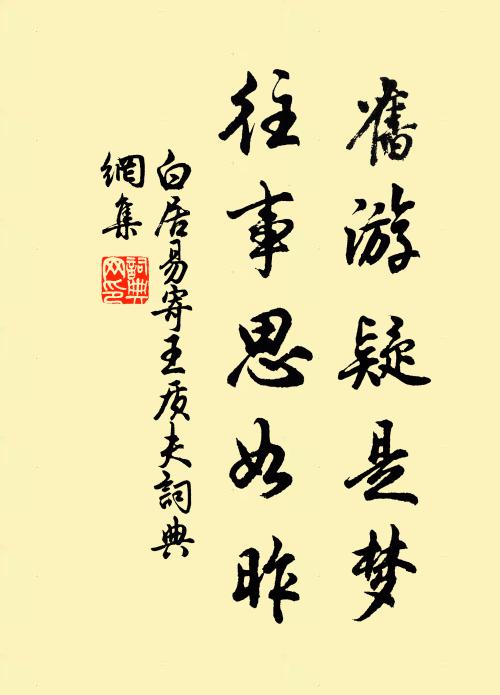 舊游疑是梦
往事思如昨
白居易寄王质夫詞典
網集
詞典
网印